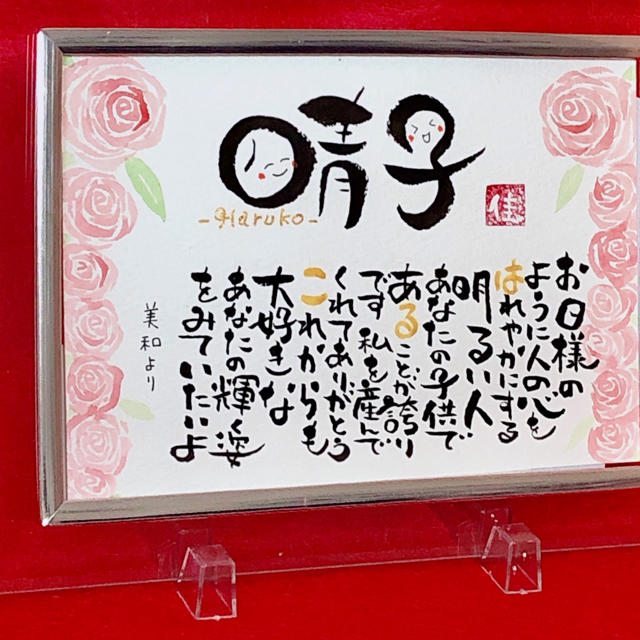 晴子
-Haruko-
佳
お日様の
ように人の心を
はれやかにする
明るい人
あなたの子供で
あることが誇り
です 私を産んで
くれてありがとう
これからも
大好きな
あなたの輝く姿
をみていたいよ
美和より